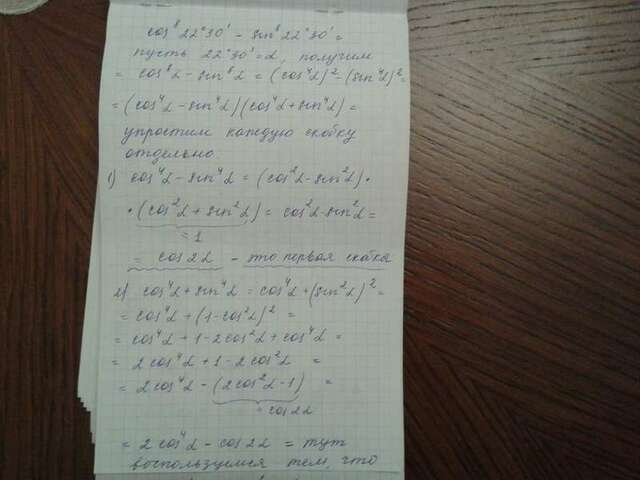 cos⁸22°30' - sin⁸22°30' =
пусть 22°30' = α, получим
= cos⁸α - sin⁸α = (cos⁴α)² - (sin⁴α)² =
= (cos⁴α - sin⁴α)(cos⁴α + sin⁴α) =
упростим каждую скобку
отдельно
1) cos⁴α - sin⁴α = (cos²α - sin²α) •
• (cos²α + sin²α) = cos²α - sin²α =
= 1
= cos2α - это первая скобка
2) cos⁴α + sin⁴α = cos⁴α + (sin²α)² =
= cos⁴α + (1 - cos²α)² =
= cos⁴α + 1 - 2cos²α + cos⁴α =
= 2cos⁴α + 1 - 2cos²α =
= 2cos⁴α - (2cos²α - 1) =
= cos2α
= 2cos⁴α - cos2α = тут
воспользуемся тем, что